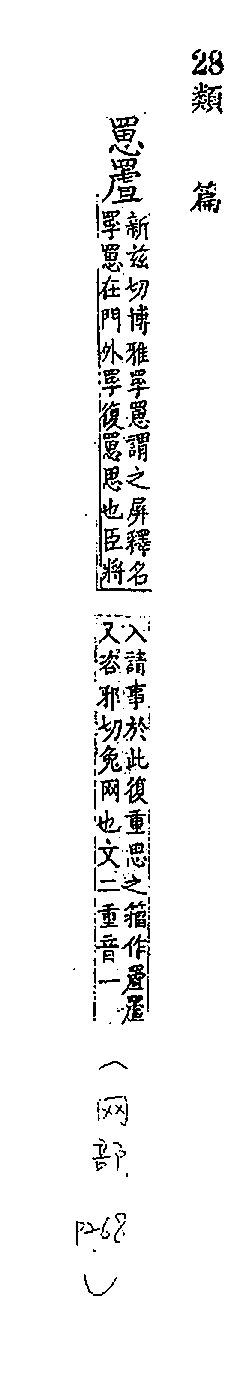 28類篇
罳罿
新兹切博雅罘罳謂之屏釋名
罘罳在門外罘復罳思也臣將
入請事於此復重思之籀作
又咨邪切兔网也文二重音一
(网部 P268)